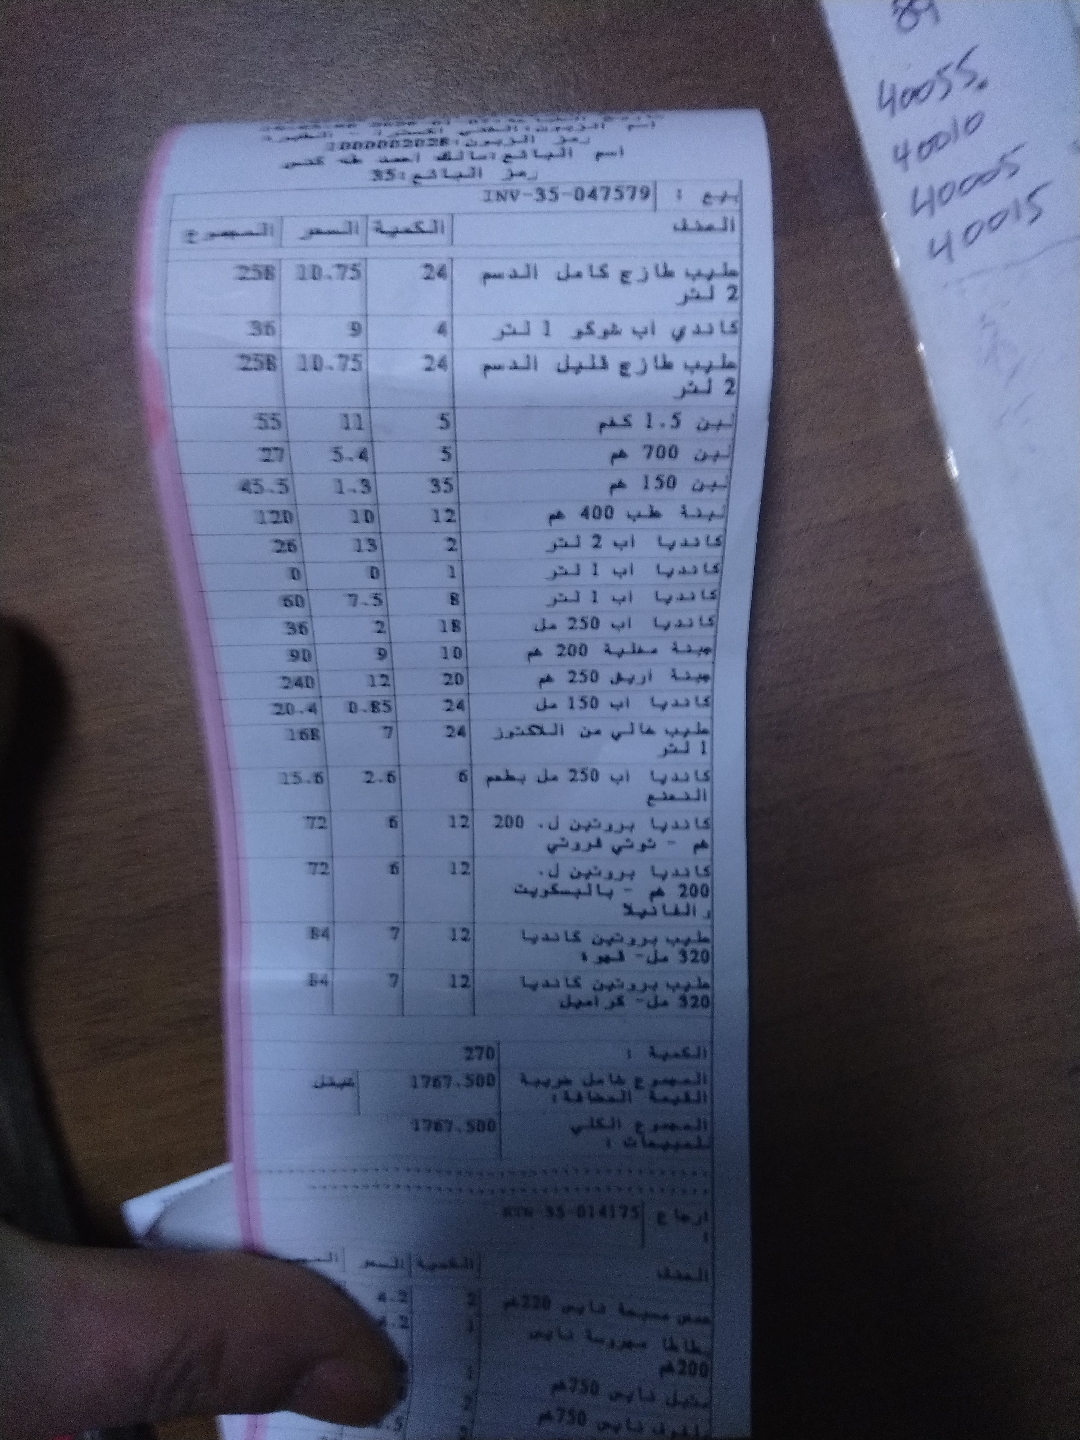 رمز الزبون:1000002028
اسم البائع:مالك احمد طه
رمز البائع:35
بيع : INV-35-047579
الصنف الكمية السعر المجموع
حليب طازج كامل الدسم 24 10.75 258
2 لتر
كاندي اب شوكو 1 لتر 4 9 36
حليب طازج قليل الدسم 24 10.75 258
2 لتر
لبن 1.5 كغم 5 11 55
لبن 700 غم 5 5.4 27
لبن 150 غم 35 1.3 45.5
لبنة طب 400 غم 12 10 120
كانديا اب 2 لتر 2 13 26
كانديا اب 1 لتر 1 0 0
كانديا اب 1 لتر 8 7.5 60
كانديا اب 250 مل 18 2 36
جبنة مغلية 200 غم 10 9 90
جبنة اريش 250 غم 20 12 240
كانديا اب 150 مل 24 0.85 20.4
حليب خالي من اللاكتوز 24 7 168
1 لتر
كانديا اب 250 مل بطعم 6 2.6 15.6
النعنع
كانديا بروتين ل. 200 12 6 72
غم - توتي فروتي
كانديا بروتين ل. 12 6 72
200 غم - بالبسكويت
والفانيلا
حليب بروتين كانديا 12 7 84
320 مل- قهوة
حليب بروتين كانديا 12 7 84
320 مل- كراميل
الكمية : 270
المجموع شامل ضريبة 1767.500 شيكل
القيمة المضافة:
المجموع الكلي 1767.500
للمبيعات :
ارجاع RTN-35-014175
:
الصنف الكمية السعر
حمص مسبحة نايس 220غم 2 4.2
بطاطا مهروسة نايس 1
200غم
نايس 750غم
نايس 750غم
89
40055.
40010
40005
40015